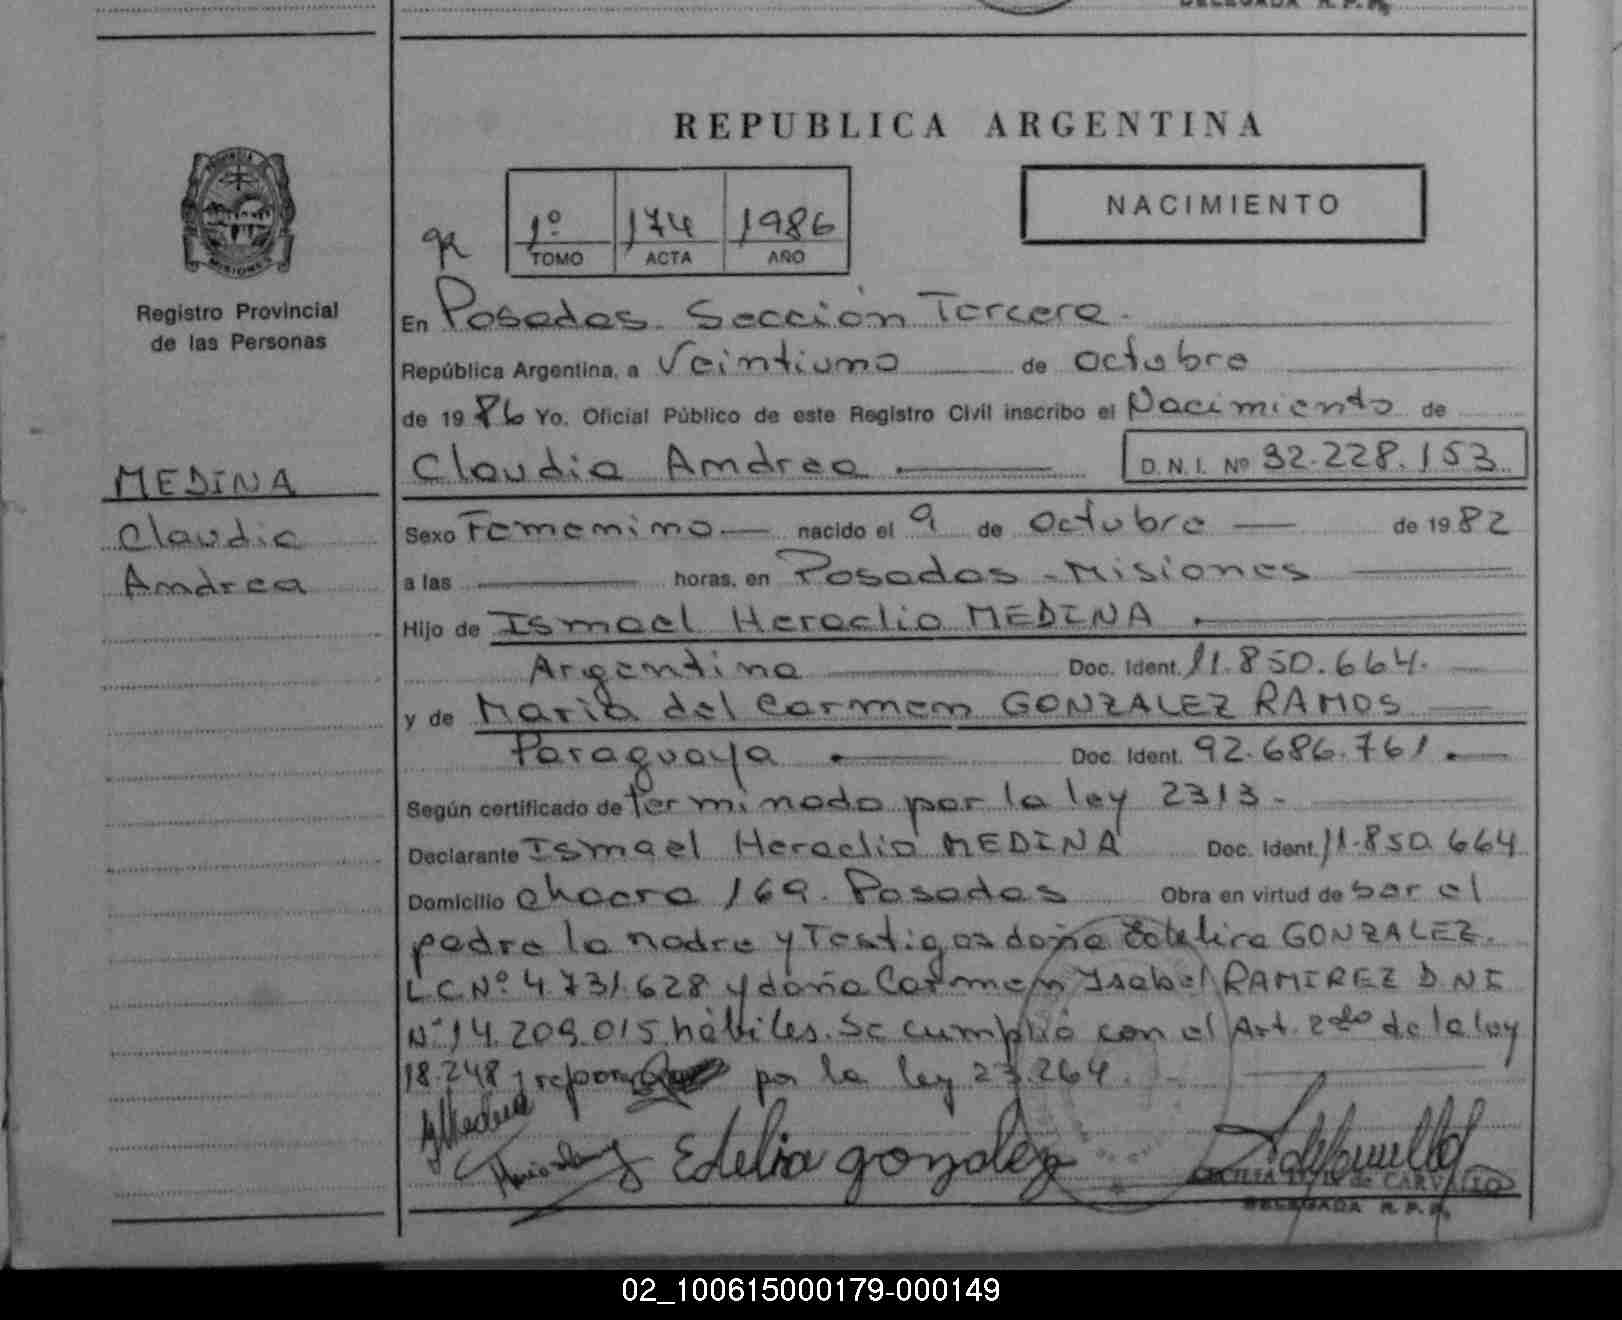 REPUBLICA ARGENTINA
1º 174 1986
TOMO ACTA AÑO
NACIMIENTO
PROVINCIA
MISIONES
Registro Provincial
de las Personas
En Posadas. Sección Tercera.
República Argentina, a Veintiuno de octubre
de 1986 Yo, Oficial Público de este Registro Civil inscribo el Nacimiento de
Claudia Andrea D.N.I. Nº 32.228.153
MEDINA
Claudia
Andrea
Sexo Femenino nacido el 9 de octubre de 1982
a las horas, en Posadas - Misiones
Hijo de Ismael Heraclio MEDINA
Argentino Doc. Ident. 11.850.664.
y de Maria del Carmen GONZALEZ RAMOS
Paraguaya Doc. Ident. 92.686.761.
Según certificado de terminado por la ley 2313.
Declarante Ismael Heraclio MEDINA Doc. Ident. 11.850.664
Domicilio chacra 169. Posadas Obra en virtud de ser el
padre la madre y Testigos doña GONZALEZ.
L.C.Nº 4.731.628 y doña Carmen Isabel RAMIREZ D.NI
Nº 14.209.015 hábiles. Se cumplió con el Art. 2do de la ley
18.248 por la ley 23.264.
Edelia gonzalez
de CARVALLO
DELEGADA R.P.P.
02_100615000179-000149